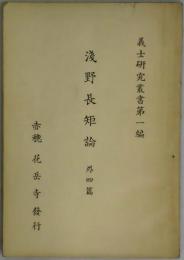 義士研究叢書第一編
淺野長矩論 外四篇
赤穂 花岳寺發行